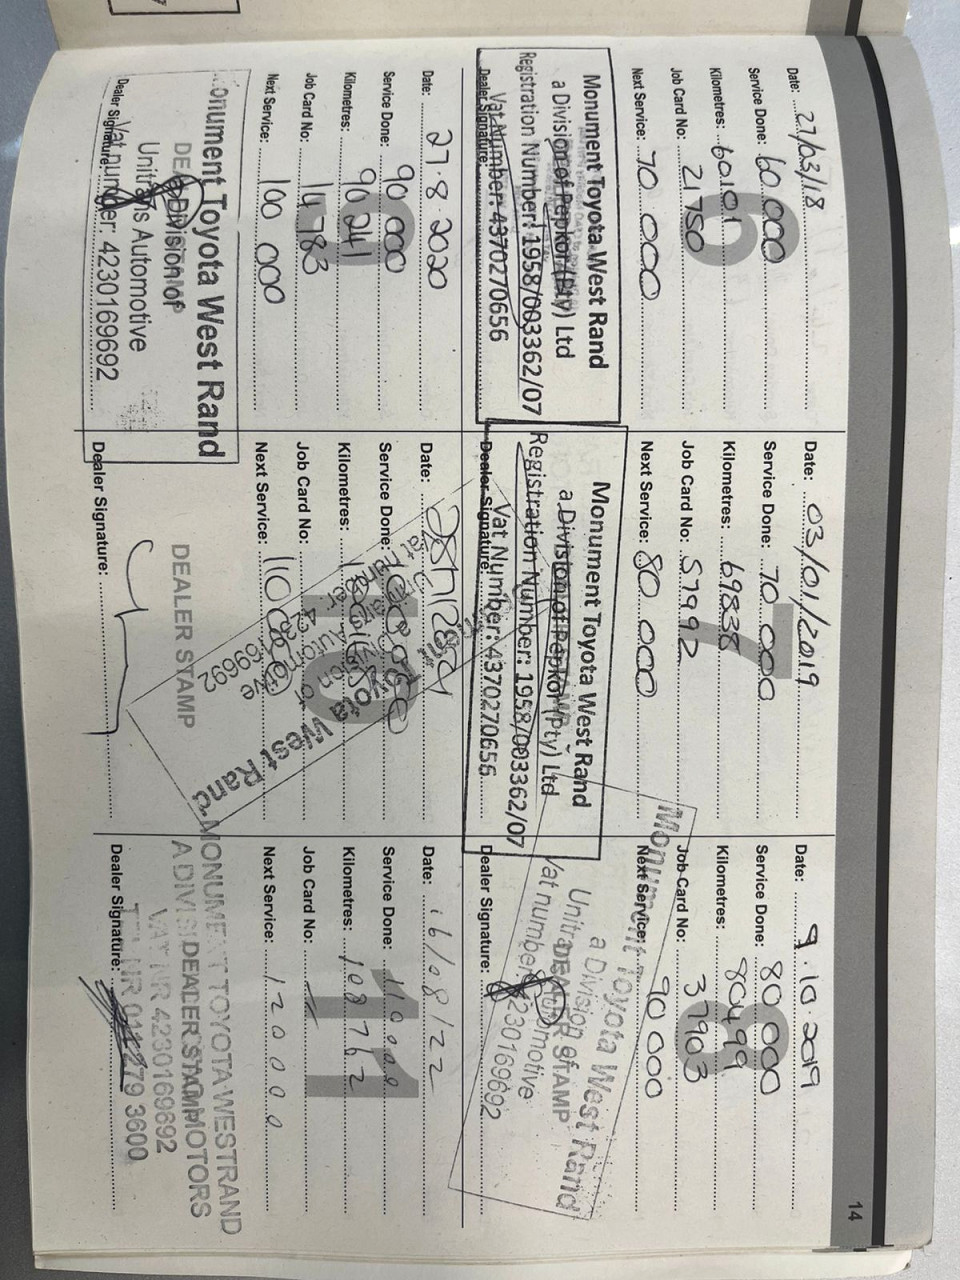 14
6
Date: 27/03/18
Service Done: 60 000
Kilometres: 60101
Job Card No: 21750
Next Service: 70 000
Monument Toyota West Rand
a Division of Pepkor (Pty) Ltd
Registration Number: 1958/003362/07
Vat Number: 4370270656
Dealer Signature:
7
Date: 03/01/2019
Service Done: 70 000
Kilometres: 69838
Job Card No: 57992
Next Service: 80 000
Monument Toyota West Rand
a Division of Pepkor (Pty) Ltd
Registration Number: 1958/003362/07
Vat Number: 4370270656
Dealer Signature:
8
Date: 9.10.2019
Service Done: 80 000
Kilometres: 80499
Job Card No: 37903
Next Service: 90 000
Monument Toyota West Rand
a Division of
Unitrans Automotive
DEALER STAMP
Vat number: 4230169692
Dealer Signature:
9
Date: 27.8.2020
Service Done: 90 000
Kilometres: 90241
Job Card No: 14783
Next Service: 100 000
Monument Toyota West Rand
a Division of
Unitrans Automotive
Vat number: 4230169692
Dealer Signature:
10
Date:
Service Done:
Kilometres:
Job Card No:
Next Service: 110
Toyota West Rand
DEALER STAMP
Dealer Signature:
11
Date: 16/08/22
Service Done: 110 000
Kilometres: 108762
Job Card No:
Next Service: 120000
MONUMENT TOYOTA WESTRAND
DEALER STAMP
MOTORS
VAT NR 4230169692
TEL NR 011 279 3600
Dealer Signature: